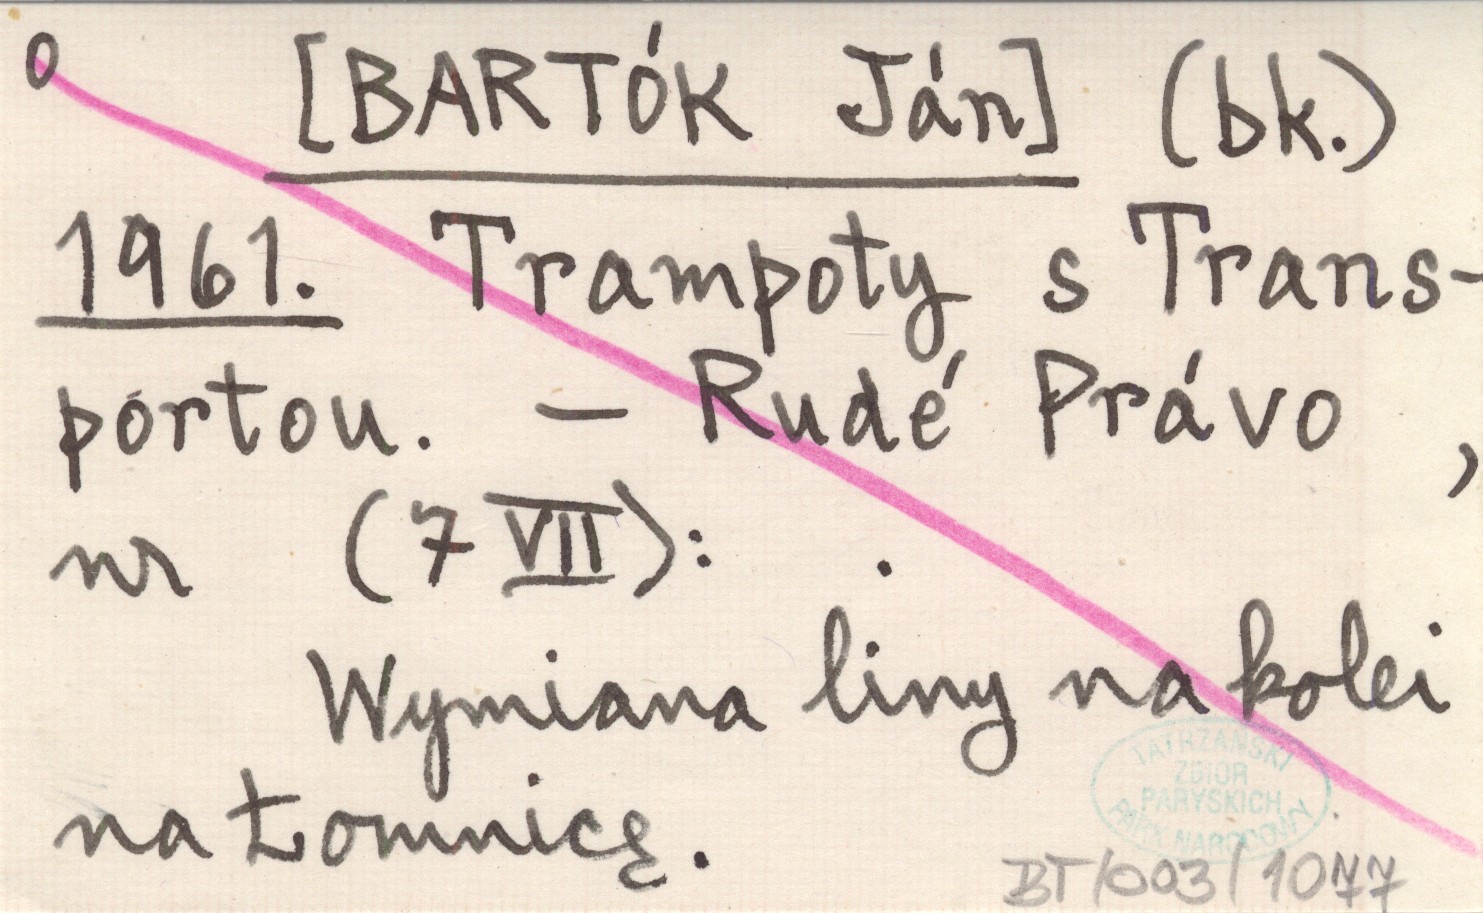 0 [BARTÓK Ján] (bk.)
1961. Trampoty s Trans-
portou. — Rudé Právo,
nr (7 VII):
Wymiana liny na kolei
na Łomnicę.
TATRZAŃSKI
ZBIÓR
PARYSKICH
PARK NARODOWY
BT/003/1077